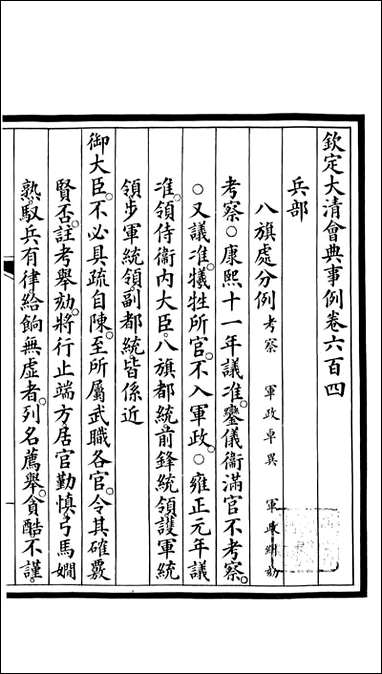 欽定大清會典事例卷六百四
兵部
八旗處分例 考察 軍政卓異 軍政糾劾
考察○康熙十一年議准鑾儀衞滿官不考察
○又議准犧牲所官不入軍政○雍正元年議
准領侍衞內大臣八旗都統前鋒統領護軍統
領步軍統領副都統皆係近
御大臣不必具疏自陳至所屬武職各官令其確覈
賢否註考舉劾將行止端方居官勤慎弓馬嫺
熟馭兵有律給餉無虛者列名薦舉貪酷不謹